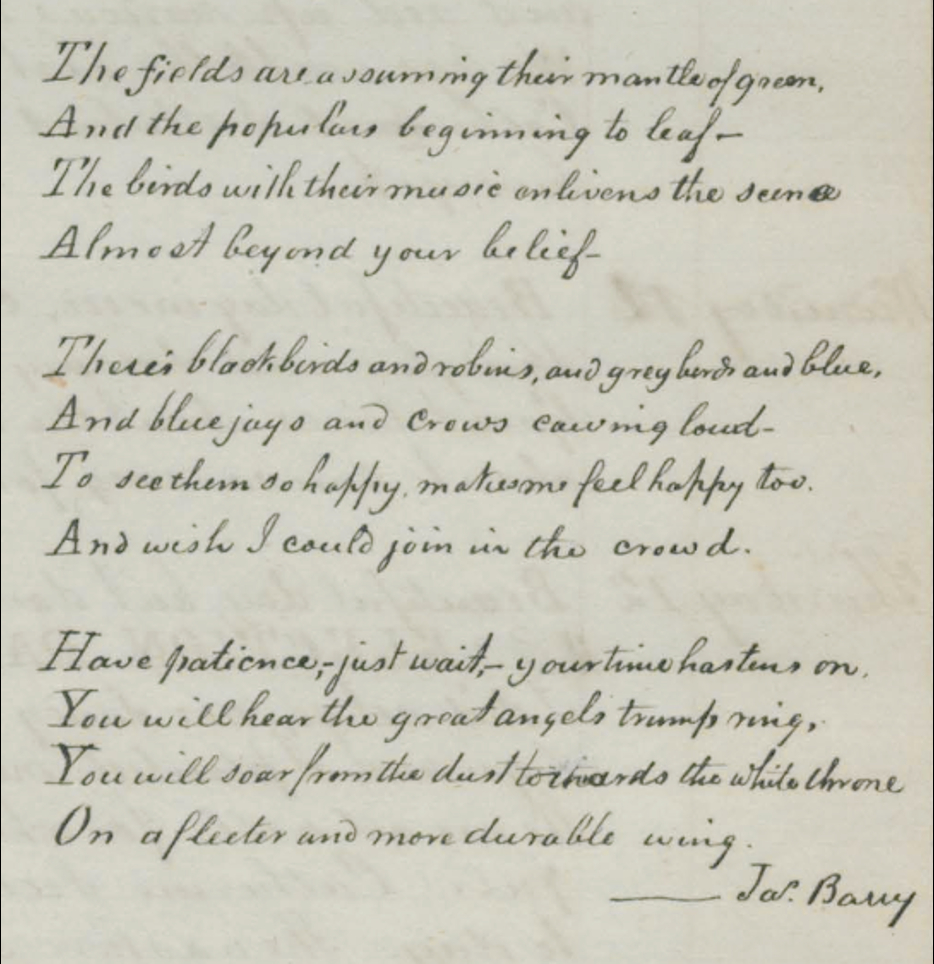 The fields are assuming their mantle of green,
And the populars beginning to leaf-
The birds with their music enlivens the scene
Almost beyond your belief-
There's blackbirds and robins, and grey birds and blue,
And blue jays and crows cawing loud-
To see them so happy, makes me feel happy too.
And wish I could join in the crowd.
Have patience,-just wait,- your time hastens on,
You will hear the great angels trump ring,
You will soar from the dust towards the white throne
On a fleeter and more durable wing.
—— Jas. Barry